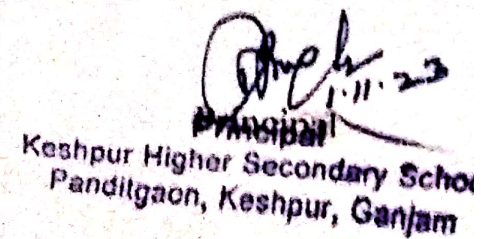 1.11.23
Principal
Keshpur Higher Secondary Schoo
Panditgaon, Keshpur, Ganjam